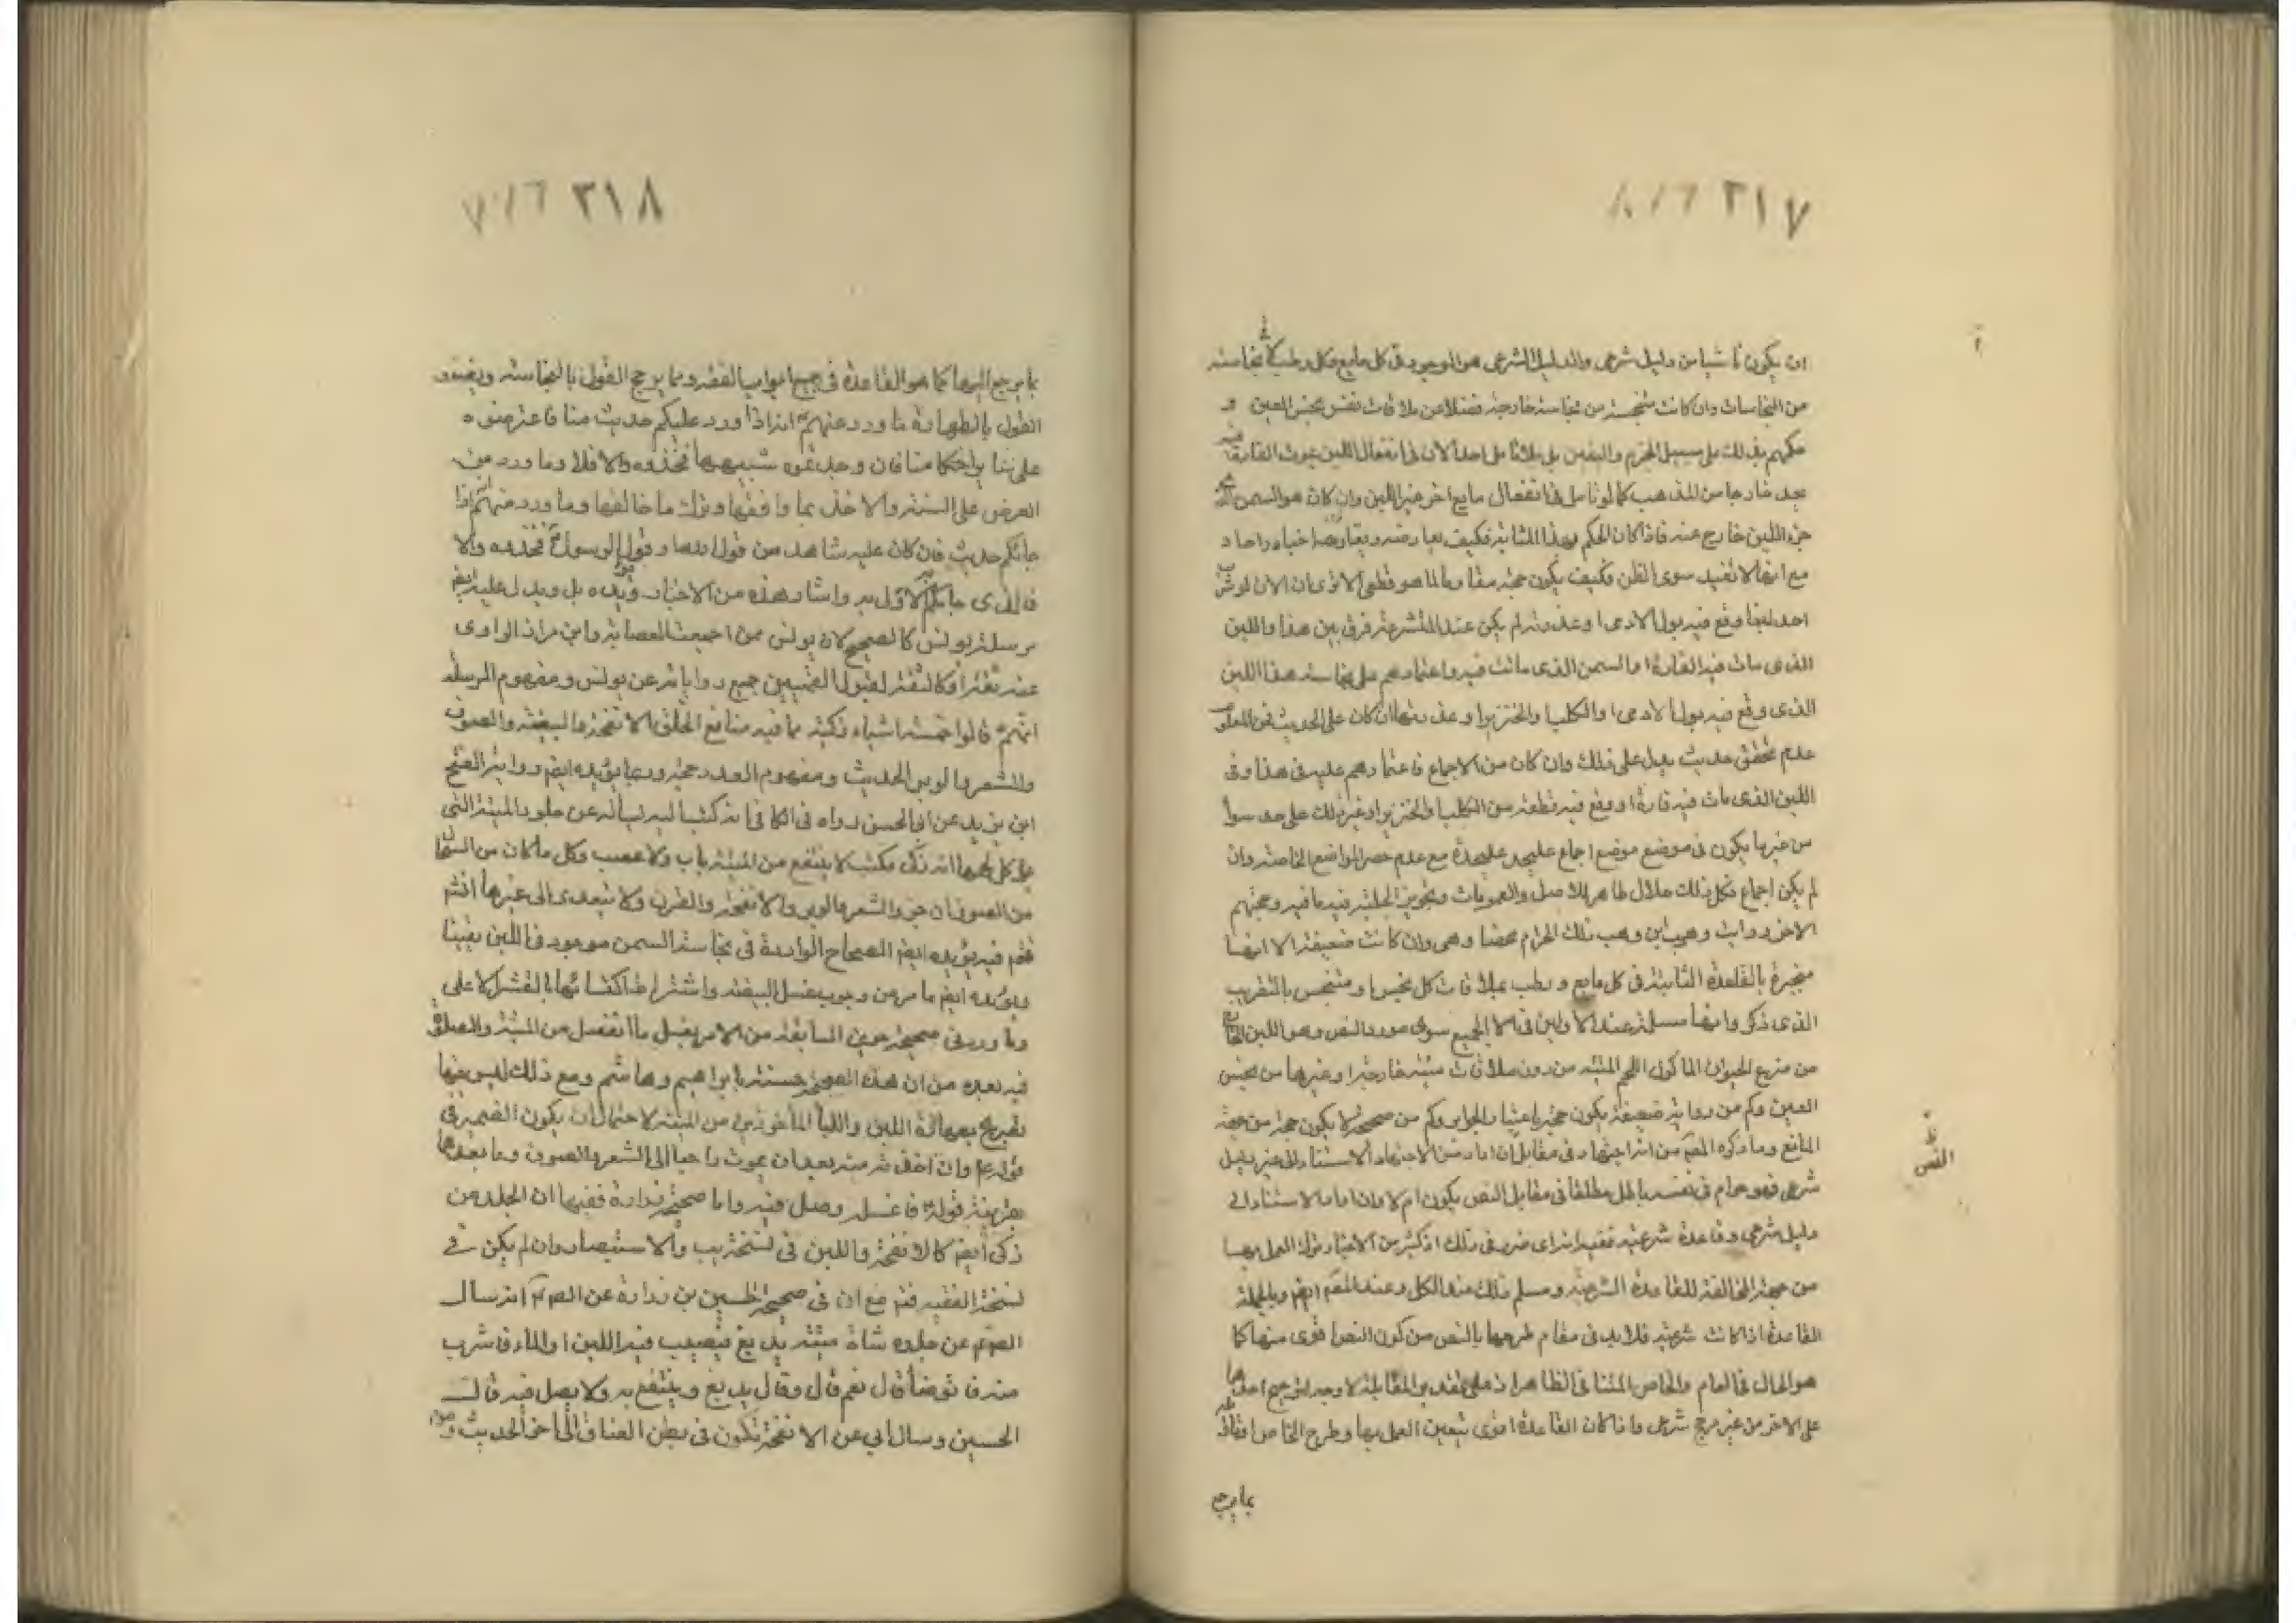 ٢١٧ ٦١٨
ان يكون ناشيا من دليل شرعى والدليل الشرعى هو الموجود فى كل مايع وكل رطب نجاسته
من النجاسات وان كانت متنجسة من نجاسة خارجة فضلا عن ملاقات نفس نجس العين و
حكمهم بذلك على سبيل الجزم واليقين بل بلا تامل احد الان فى انفعال اللبن بموت الفارة فيه
يعد خارجا من المذهب كما لو تامل فى انفعال مايع اخر غير اللبن وان كان هو السمن
جزء اللبن خارج عنه فاذا كان الحكم بهذا المثابة فكيف يعارضه ويعارضها اخبار احاد
مع انها لا تفيد سوى الظن فكيف يكون حجة مقاوما لما هو قطعى الا ترى ان الان لو شرب
احد لبنا وقع فيه بول الادمى او عذرته لم يكن عند المتشرعة فرق بين هذا واللبن
الذى مات فيه الفارة او السمن الذى ماتت فيه واعتمادهم على نجاسة هذا اللبن
الذى وقع فيه بول الادمى او الكلب والخنزير او عذرتها ان كان على الحديث فمن المعلوم
عدم تحقق حديث يدل على ذلك وان كان من الاجماع فاعتمادهم عليه فى هذا وفى
اللبن الذى مات فيه فارة او وقع فيه قطعة من الكلب او الخنزير او غير ذلك على حد سواء
من غير ما يكون فى موضع موضع اجماع عليحد عليحدة مع عدم حصر المواضع الخاصة وان
لم يكن اجماع فكل ذلك حلال طاهر للاصل والعمومات وتجويز الحلية فيه ما فيه وحجتهم
الاخرى رواية وهب بن وهب تلك الحرام محضا وهى وان كانت ضعيفة الا انها
منجبرة بالقاعدة الثابتة فى كل مايع ورطب بملاقات كل نجس او متنجس بالتقريب
الذى ذكر وانها مسلمة عند الاولين فى الجميع سوى مورد النص وهو اللبن
من ضرع الحيوان الماكول اللحم الميتة من دون ملاقات ميتة خارجة او غيرها من نجس
العين وكم من رواية ضعيفة يكون حجة باعتبار الجوابر وكم من صحيحة لا يكون حجة من جهة
المانع وما ذكره المصم من انه اجتهاد فى مقابل ان اراد من الاجتهاد الاستناد الى غير دليل
شرعى فهو حرام فى نفسه باطل مطلقا فى مقابل النص يكون ام لا وان اراد الاستناد الى
دليل شرعى وقاعدة شرعية ففيه انه اى ضرر فى ذلك اذ كثير من الاخبار ترك العمل بها
من جهة المخالفة للقاعدة الشرعية ومسلم ذلك عند الكل وعند المصم ايضم وبالجملة
القاعدة اذا كانت شرعية فلا بد فى مقام طرحها بالنص من كون النص اقوى منها كما
هو الحال فى العام والخاص المتنافى الظاهر اذ على تقدير المقابلة لا وجه لترجيح احدهما
على الاخر من غير مرجح شرعى واذا كان القاعدة اقوى تعين العمل بها وطرح الخاص
بما يرجع
ظ
النص
٢١٨ ٦١٧
بما يرجع اليها كما هو القاعدة فى جميع ابواب الفقه ومما يرجح القول بالنجاسة ويضعف
القول بالطهارة ما ورد عنهم انه اذا ورد عليكم حديث منا فاعرضوه
على كتاب الله فان وجدتموه شبيهها فخذوه والا فلا وما ورد من
العرض على السنة والاخذ بما وافقها وترك ما خالفها وما ورد منهم اذا
جائكم حديث فان كان عليه شاهد من قول الله او قول الرسول فخذوه والا
فالذى جائكم به اولى به وامثال هذه من الاخبار ويؤيده بل ويدل عليه ايضم
مرسلة يونس كالصحيح لان يونس ممن اجمعت العصابة وابن مرار الراوى
عنه ثقة او كالثقة لقبول القميين جميع رواياته عن يونس ومفهوم المرسلة
انهم قالوا خمسة اشياء ذكية مما فيه منافع الخلق الانفحة والبيضة والصوف
والشعر والوبر الحديث ومفهوم العدد حجة وربما يؤيده ايضم رواية الفتح
ابن يزيد عن ابى الحسن رواه فى الكافى انه كتب اليه يساله عن جلود الميتة التى
يوكل لحمها ان ذكى فكتب لا ينتفع من الميتة باهاب ولا عصب وكل ما كان من السخال
من الصوف ان جز والشعر والوبر والانفحة والقرن ولا يتعدى الى غيرها انشم
فتم فيه يؤيده ايضم الصحاح الواردة فى نجاسة السمن موجود فى اللبن يقينا
ويؤيده ايضم ما مر من وجوب غسل البيضة واشتراط اكتسائها بالقشر الاعلى
وما ورد فى صحيحة حريز السابقة من الامر بغسل ما انفصل من الميتة والصلوة
فيه بعده من ان هذه الصحيحة حسنة بابراهيم وهاشم ومع ذلك ليس فيها
تصريح بطهارة اللبن واللبأ الماخوذين من الميتة لاحتمال ان يكون الضمير فى
قوله وان اخذته منه بعد ان يموت راجعا الى الشعر والصوف وما بعدهما
بقرينة قوله فاغسله وصل فيه واما صحيحة زرارة ففيها ان الجلد من
ذكى ايضم كالانفحة واللبن فى نسخة يب والاستبصار وان لم يكن فى
نسخة الفقيه فتم مع ان فى صحيحة الحسين بن زرارة عن الصم انه سال
الصم عن جلد شاة ميتة يدبغ فيصب فيه اللبن او الماء فاشرب
منه فاتوضأ قال نعم قال وقال يدبغ وينتفع به ولا يصلى فيه قال
الحسين وسال ابى عن الانفحة تكون فى بطن العناق الى اخر الحديث